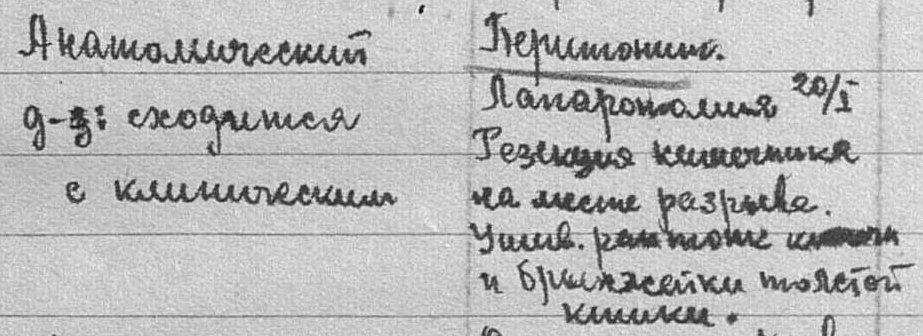 Анатомический
д-з: сходится
с клиническим
Перитонит.
Лапаротомия 20/I
Резекция кишечника
на месте разрыва.
Ушив.
и брыжейки толстой
кишки.